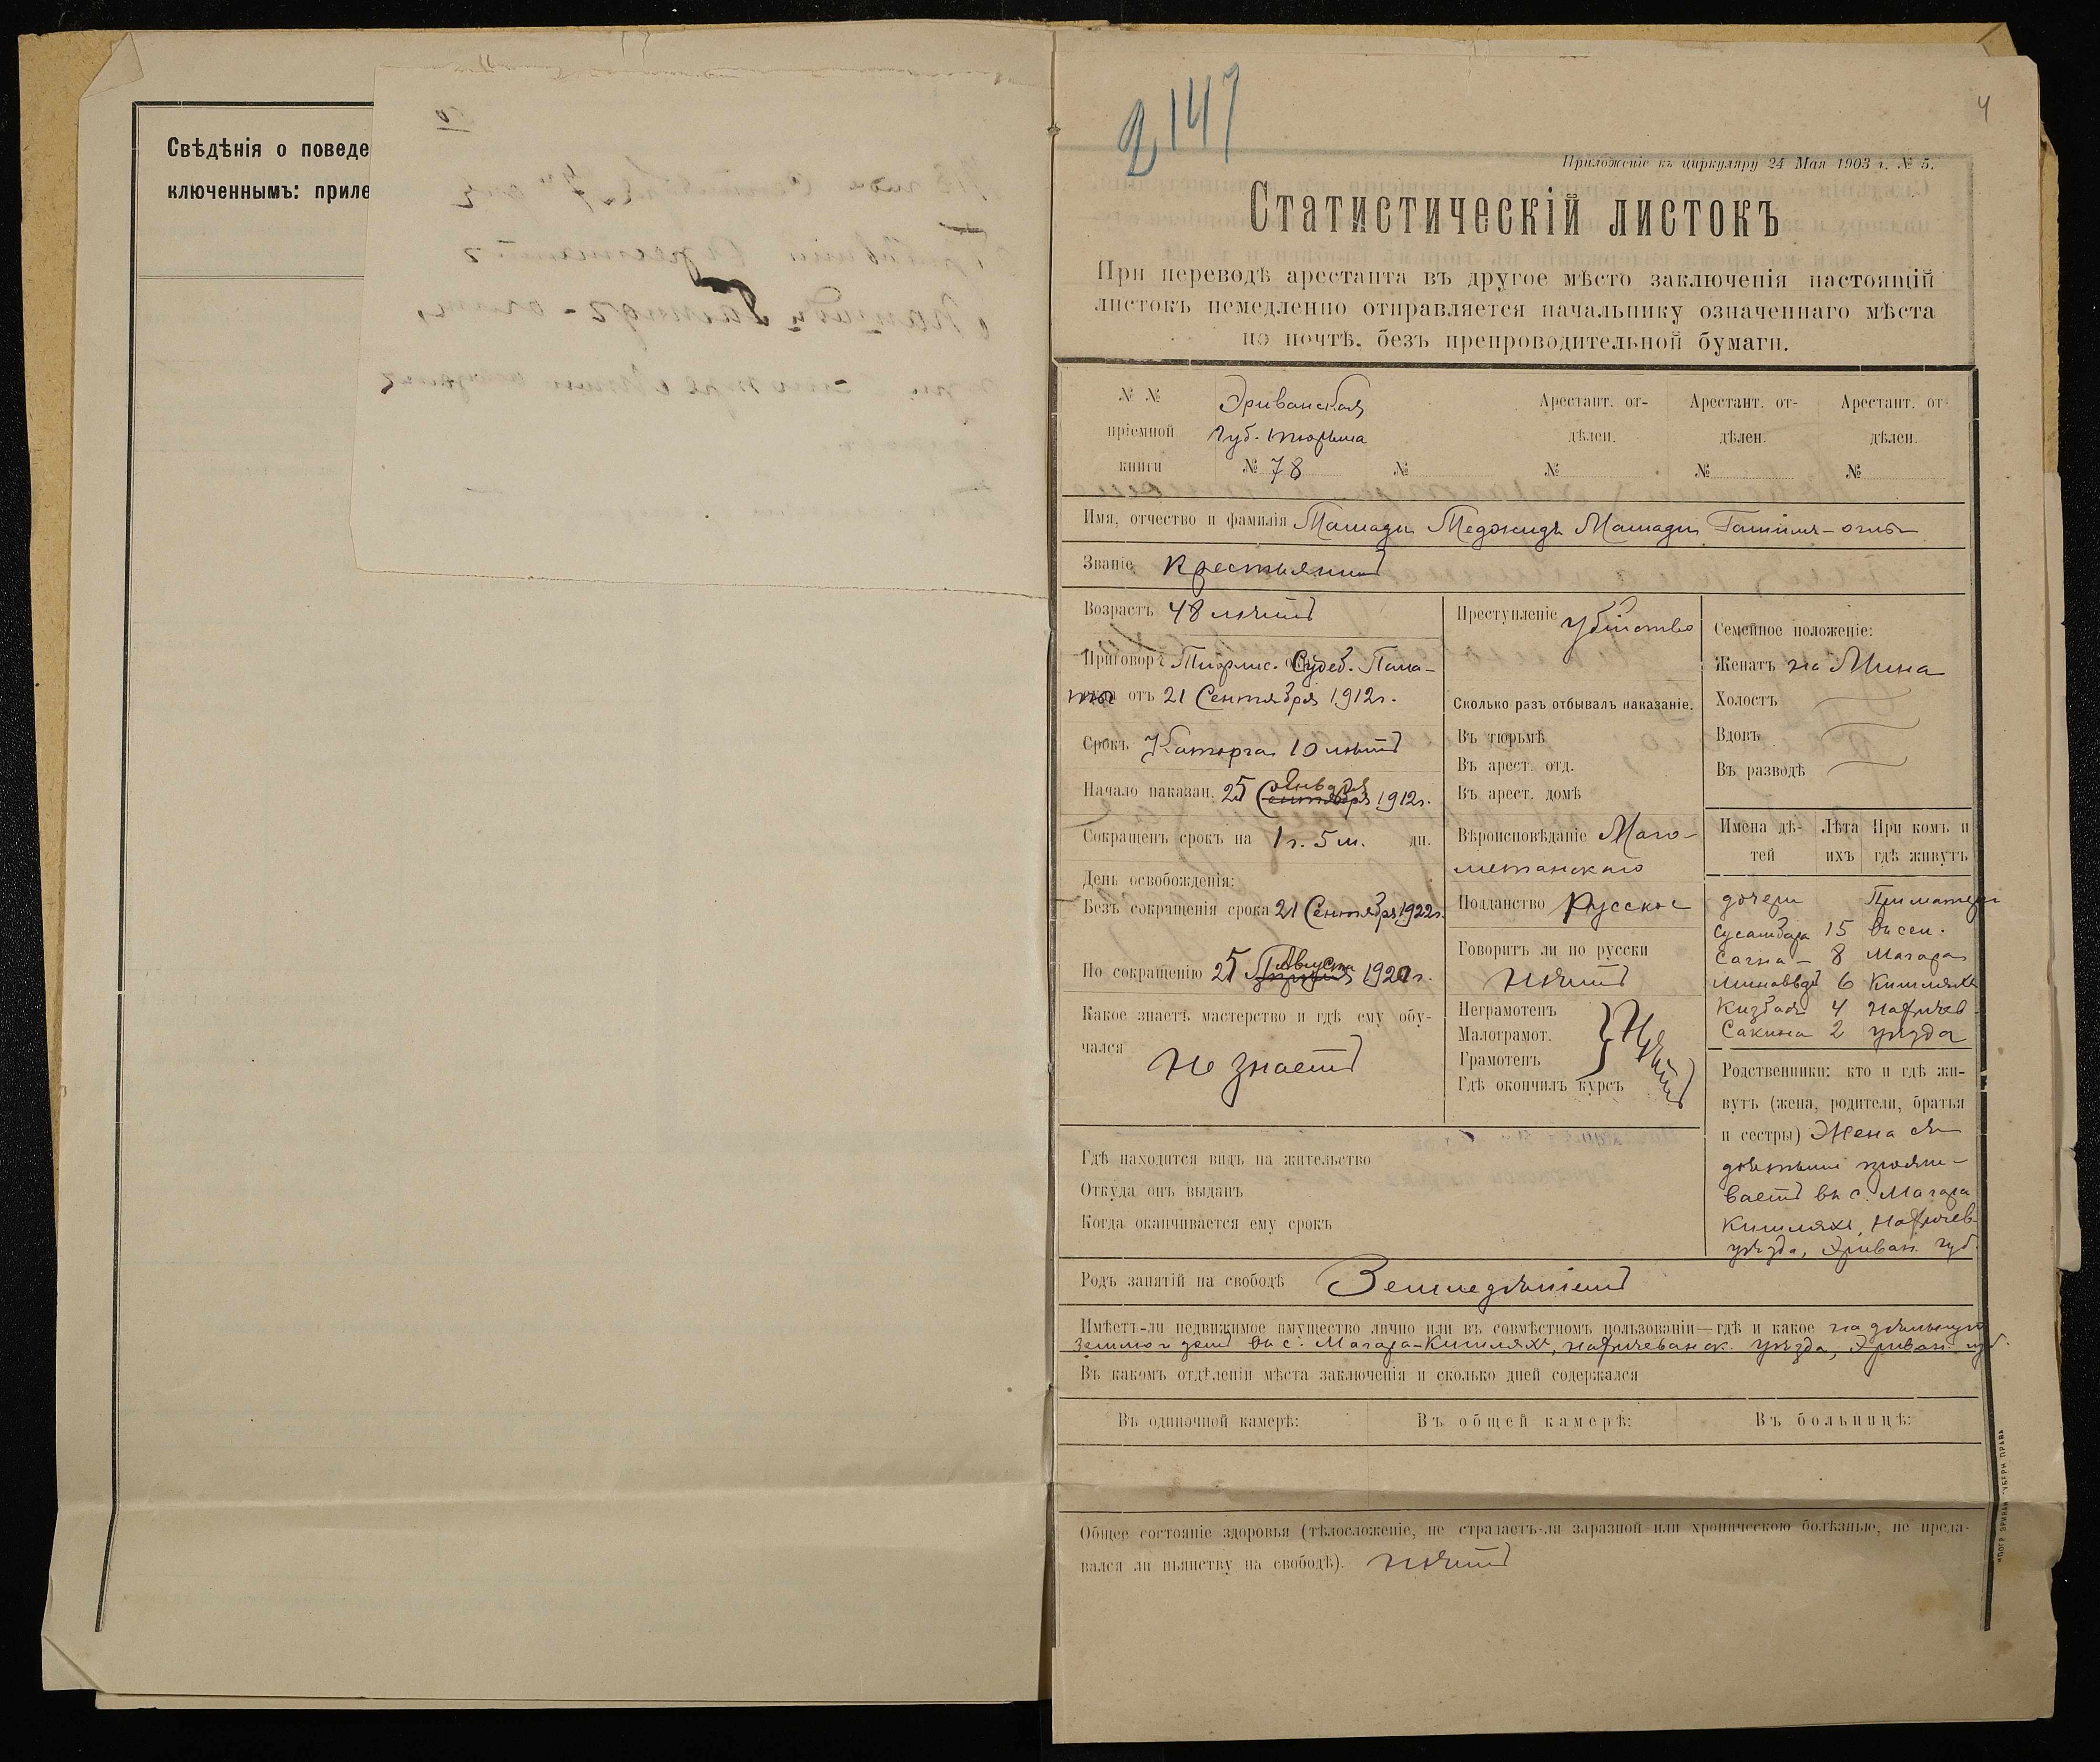 Свѣдѣнія о поведе
ключеннымъ: приле
2147
4
Приложеніе къ циркуляру 24 Мая 1903 г. № 5.
Статистическій листокъ
При переводѣ арестанта въ другое мѣсто заключенія настоящій
листокъ немедленно отправляется начальнику означеннаго мѣста
по почтѣ, безъ препроводительной бумаги.
№ № пріемной книги
Эриванская
Губ. тюрьма
№ 78
№
Арестант. отдѣлен.
№
Арестант. отдѣлен.
№
Арестант. отдѣлен.
№
Имя, отчество и фамилія Машади Меджидъ Машади оглы
Званіе Крестьянинъ
Возрастъ 48 лѣтъ
Приговоръ Тифлис. Судеб. Пала-
ты отъ 21 Сентября 1912 г.
Срокъ Каторга 10 лѣтъ
Начало наказан. 25 Сентября Января 1912 г.
Сокращенъ срокъ на 1 г. 5 м. дн.
День освобожденія:
Безъ сокращенія срока 21 Сентября 1922 г.
По сокращенію 25 Августа 1920 г.
Какое знаетъ мастерство и гдѣ ему обу-
чался Не знаетъ
Преступленіе Убійство
Сколько разъ отбывалъ наказаніе.
Въ тюрьмѣ
Въ арест. отд.
Въ арест. домѣ
Вѣроисповѣданіе Маго-
метанскаго
Подданство Русское
Говоритъ ли по русски
Нѣтъ
Неграмотенъ
Малограмот.
Грамотенъ
Гдѣ окончилъ курсъ
Нѣтъ
Семейное положеніе:
Женатъ на Мина
Холостъ
Вдовъ
Въ разводѣ
Имена дѣ-
тей
Лѣта
ихъ
При комъ и
гдѣ живутъ
дочери При матери
15 въ сел.
8 Магара
6 Кишляхѣ
4 Нахичев.
Сакина 2 уѣзда
Родственники: кто и гдѣ жи-
вутъ (жена, родители, братья
и сестры) Жена съ
дѣтьми прожи-
ваетъ въ с. Магара
Кишляхѣ, Нахичев.
уѣзда, Эриван. губ.
Гдѣ находится видъ на жительство
Откуда онъ выданъ
Когда оканчивается ему срокъ
Родъ занятій на свободѣ Земледѣліемъ
Имѣетъ-ли недвижимое имущество лично или въ совмѣстномъ пользованіи—гдѣ и какое надѣльную
землю и домъ въ с. Магара-Кишляхѣ, Нахичеванск. уѣзда, Эриван. губ.
Въ какомъ отдѣленіи мѣста заключенія и сколько дней содержался
Въ одиночной камерѣ:
Въ общей камерѣ:
Въ больницѣ:
Общее состояніе здоровья (тѣлосложеніе, не страдаетъ-ли заразной или хроническою болѣзнью, не преда-
вался ли пьянству на свободѣ). Нѣтъ